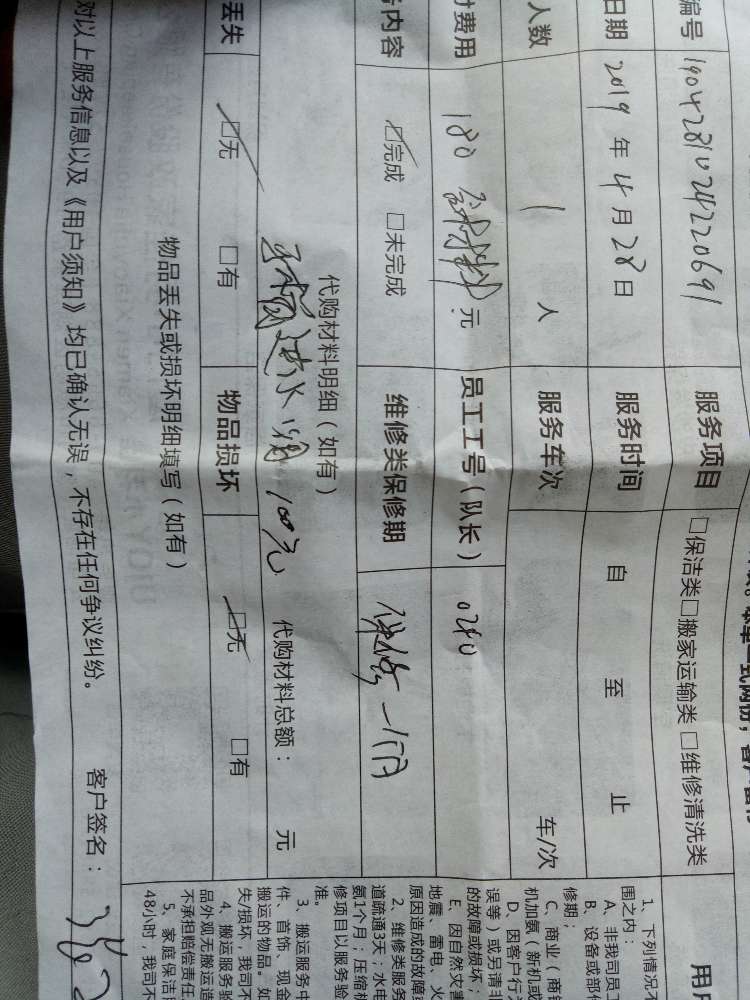 编号 1904281024220691 服务项目 □保洁类□搬家运输类 □维修清洗类
日期 2019 年 4 月 28 日 服务时间 自 至 止
人数 1 人 服务车次 车/次
费用 180 元 员工工号（队长） 0240
内容 □完成 □未完成 维修类保修期 保修一个月
代购材料明细（如有）
100元 代购材料总额： 元
丢失 □无 □有 物品损坏 □无 □有
物品丢失或损坏明细填写（如有）
对以上服务信息以及《用户须知》均已确认无误，不存在任何争议纠纷。 客户签名：
用户
1、下列情况不
围之内：
A、非我司员工
B、设备或部件
修期；
C、商业（商铺
机加氨（新机或
D、因客户行为
误等）或另请非
的故障或损坏；
E、因自然灾害
地震、雷电、火
原因造成的故障或
2、维修类服务
道疏通3天；水电
氨1个月；压缩机
修项目以服务验
准。
3、搬运服务中
件、首饰、现金
搬运的物品。如
失/损坏，我司不
4、搬运服务验
品外观无搬运造
不承担赔偿责任
5、家庭保洁服
48小时，我司不